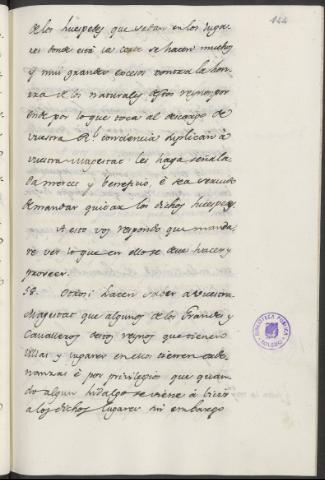 144
de los huespedes que se dan en los luga-
res donde está la corte se hacen muchos
y mui grandes excesos contra la hon-
rra de los naturales destos reynos por
ende por lo que toca al descargo de
vuestra Rl. conciencia suplican à
vuestra magestad les haga señala-
da merced y beneficio, è sea servido
de mandar quitar los dichos huespedes
A esto vos respondo que manda-
re ver lo que en ello se deve hacer y
proveer.
58. Otrosi hacen saber a vuestra
Magestad que algunos de los Grandes y
Cavalleros destos reynos que tienen
villas y lugares en ellos tienen orde-
nanzas è por privilegios que quan-
do algun hidalgo se viene à bivir
a los dichos lugares sin embargo
BIBLIOTECA PUBLICA
TOLEDO